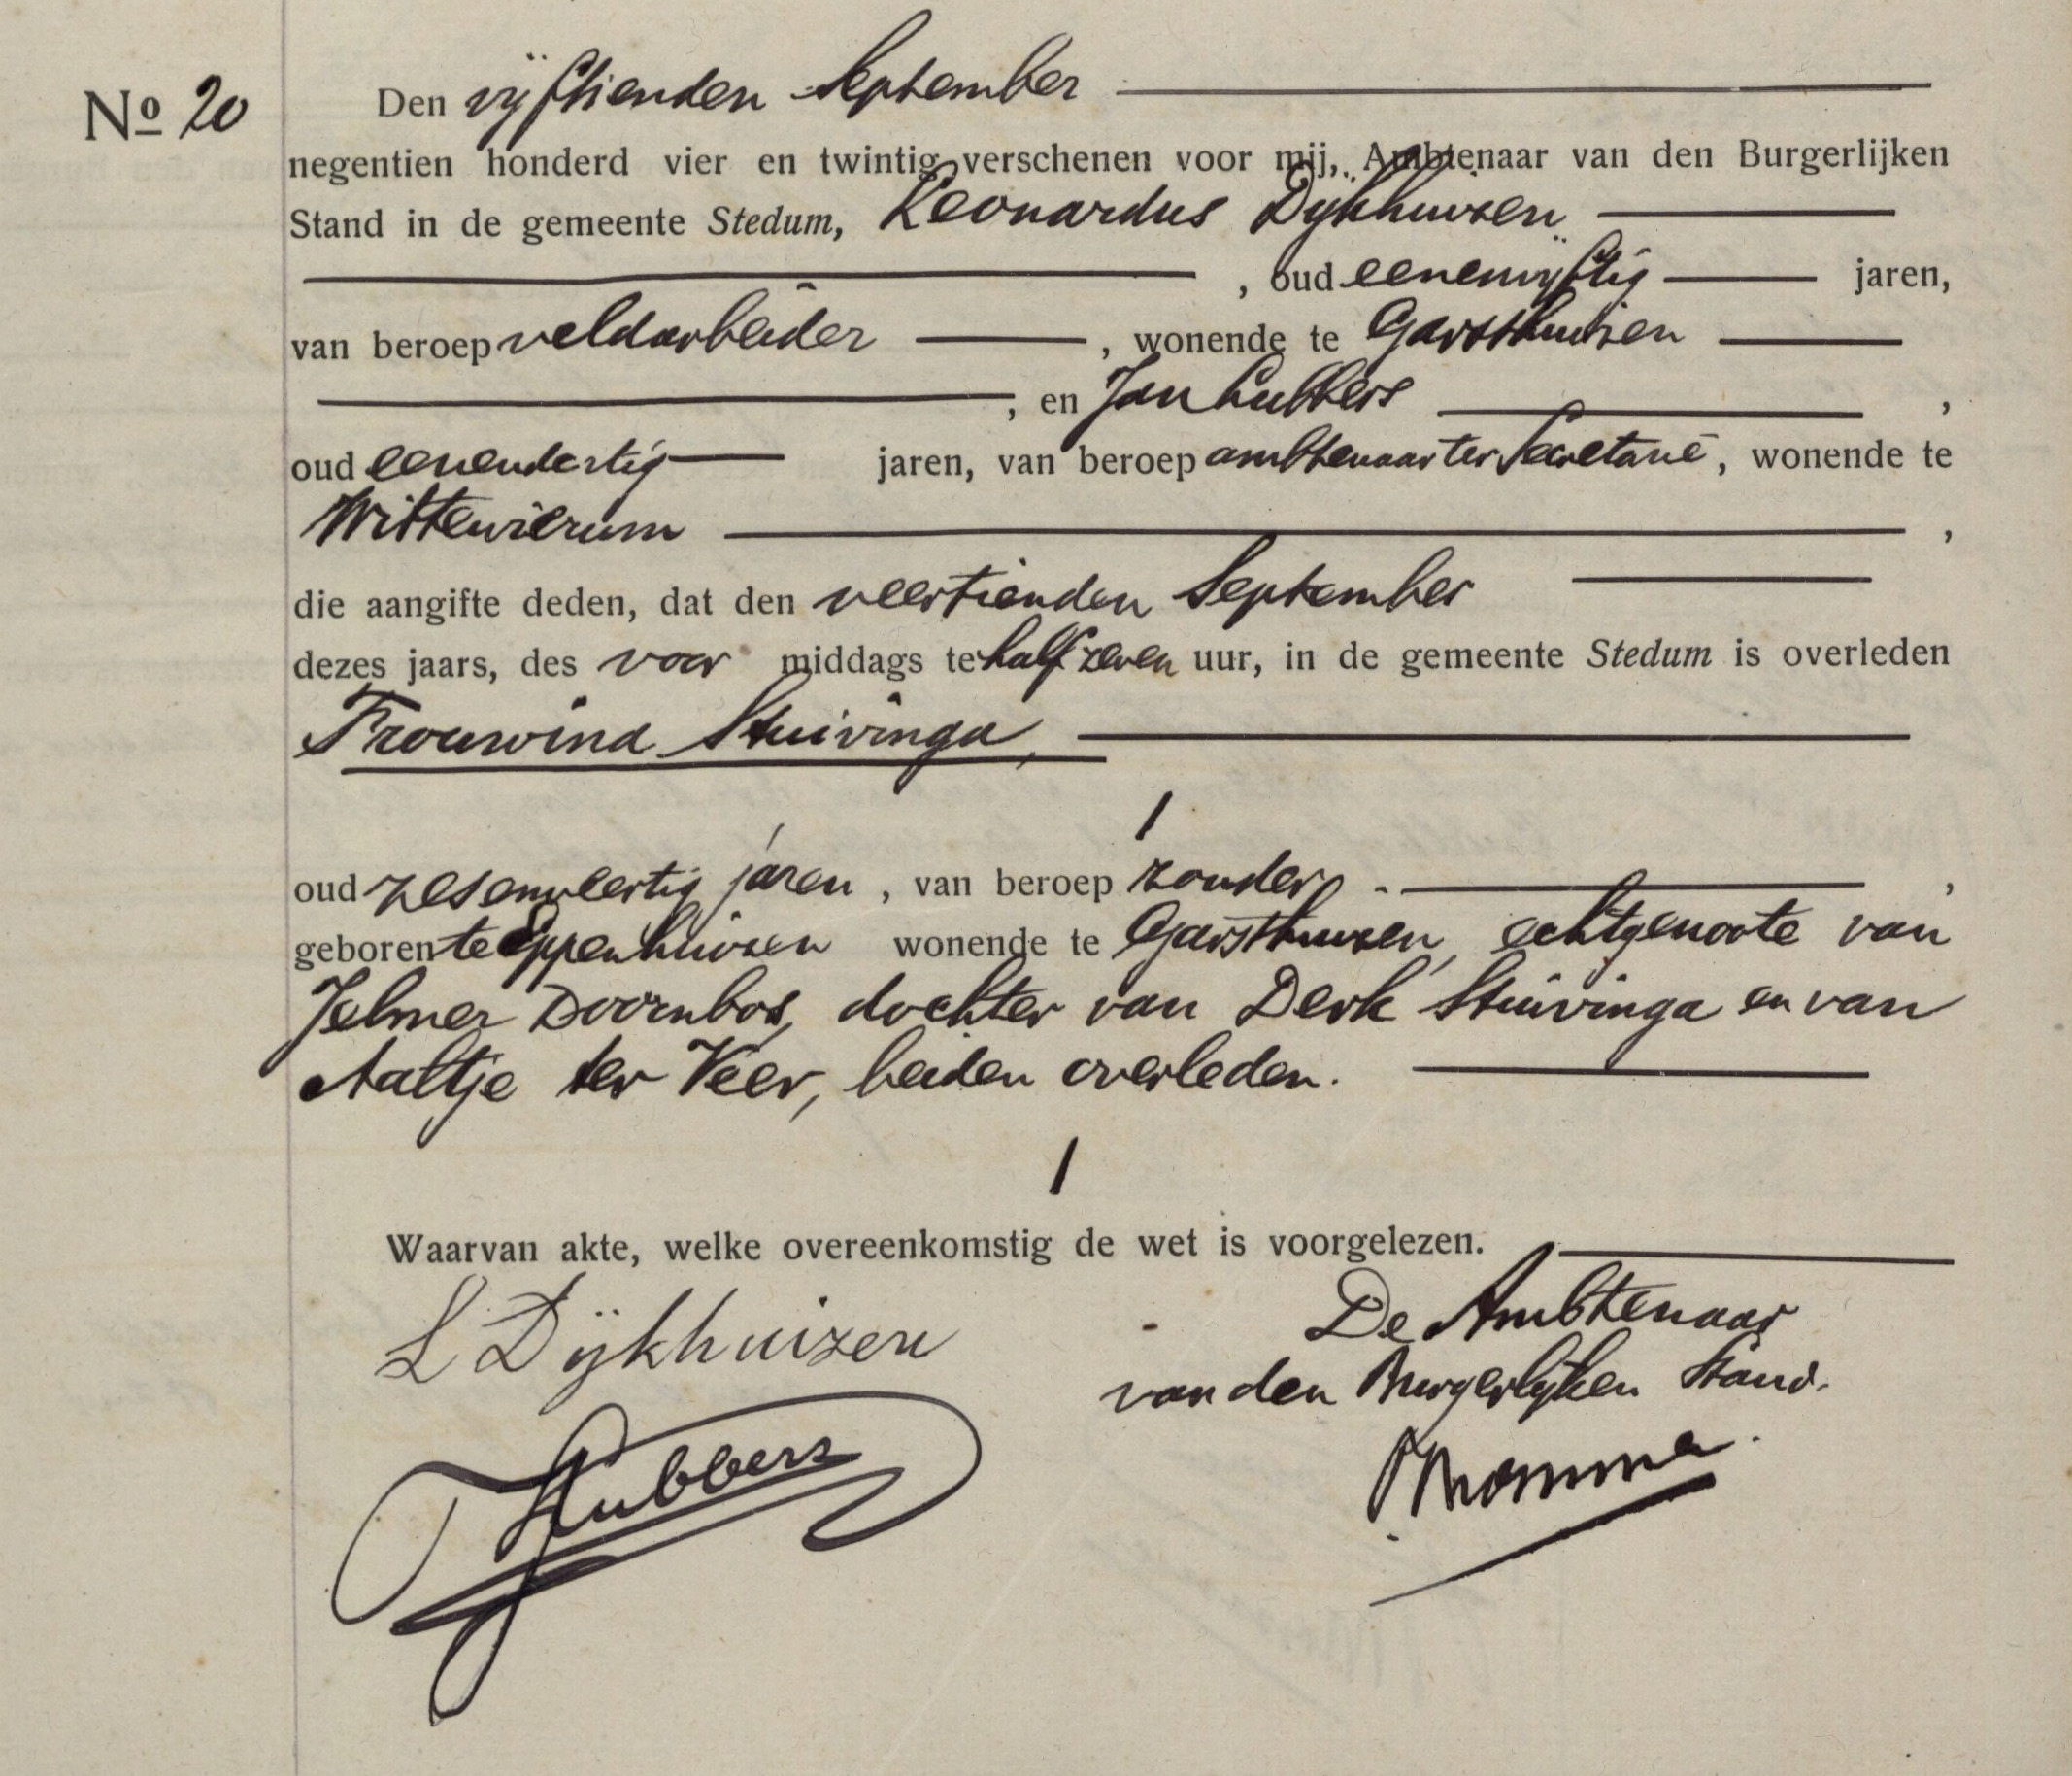 No 20
Den vijftienden September
negentien honderd vier en twintig verschenen voor mij, Ambtenaar van den Burgerlijken
Stand in de gemeente Stedum, Leonardus Dijkhuizen
, oud eenenvijftig jaren,
van beroep veldarbeider , wonende te Garsthuizen
, en Jan Lubbers ,
oud eenendertig jaren, van beroep ambtenaar ter Secretarie, wonende te
Wittewierum ,
die aangifte deden, dat den veertienden September
dezes jaars, des voor middags te half zeven uur, in de gemeente Stedum is overleden
Trouwina Stuivinga,
oud zesenveertig jaren, van beroep zonder ,
geboren te Eppenhuizen wonende te Garsthuizen, echtgenoote van
Jelmer Doornbos, dochter van Derk Stuivinga en van
Aaltje ter Veer, beiden overleden.
Waarvan akte, welke overeenkomstig de wet is voorgelezen.
L Dijkhuizen
De Ambtenaar
van den Burgerlijken Stand.
JLubbers